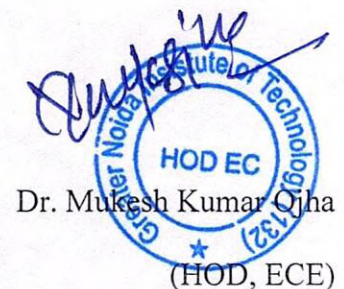 Greater Noida Institute of Technology (132)
HOD EC
Dr. Mukesh Kumar Ojha
(HOD, ECE)